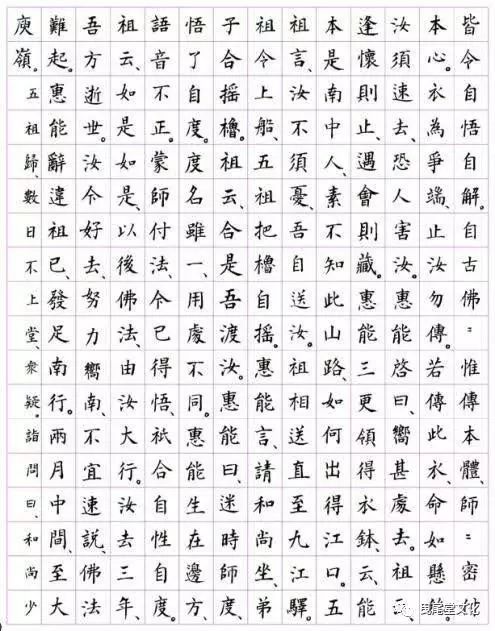 皆令自悟自解。自古佛〻惟傳本體、師〻密付
本心。衣為爭端、止汝勿傳。若傳此衣、命如懸
汝須速去、恐人害汝。惠能啓曰、嚮甚處去。祖
逢懷則止、遇會則藏。惠能三更領得衣鉢、云、能
本是南中人、素不知此山路、如何出得江口。五
祖言、汝不須憂、吾自送汝。祖相送直至九江驛。
祖令上船、五祖把櫓自摇。惠能言、請和尚坐、弟
子合摇櫓。祖云、合是吾渡汝。惠能曰、迷時師度、
悟了自度。度名雖一、用處不同。惠能生在邊方、
語音不正。蒙師付法、今已得悟、祇合自性自度。
祖云、如是如是、以後佛法、由汝大行。汝去三年、
吾方逝世。汝今好去、努力嚮南、不宜速説、佛法
難起。惠能辭違祖已、發足南行。兩月中間、至大
庾嶺。五祖歸、數日不上堂、衆疑。詣問曰、和尚少